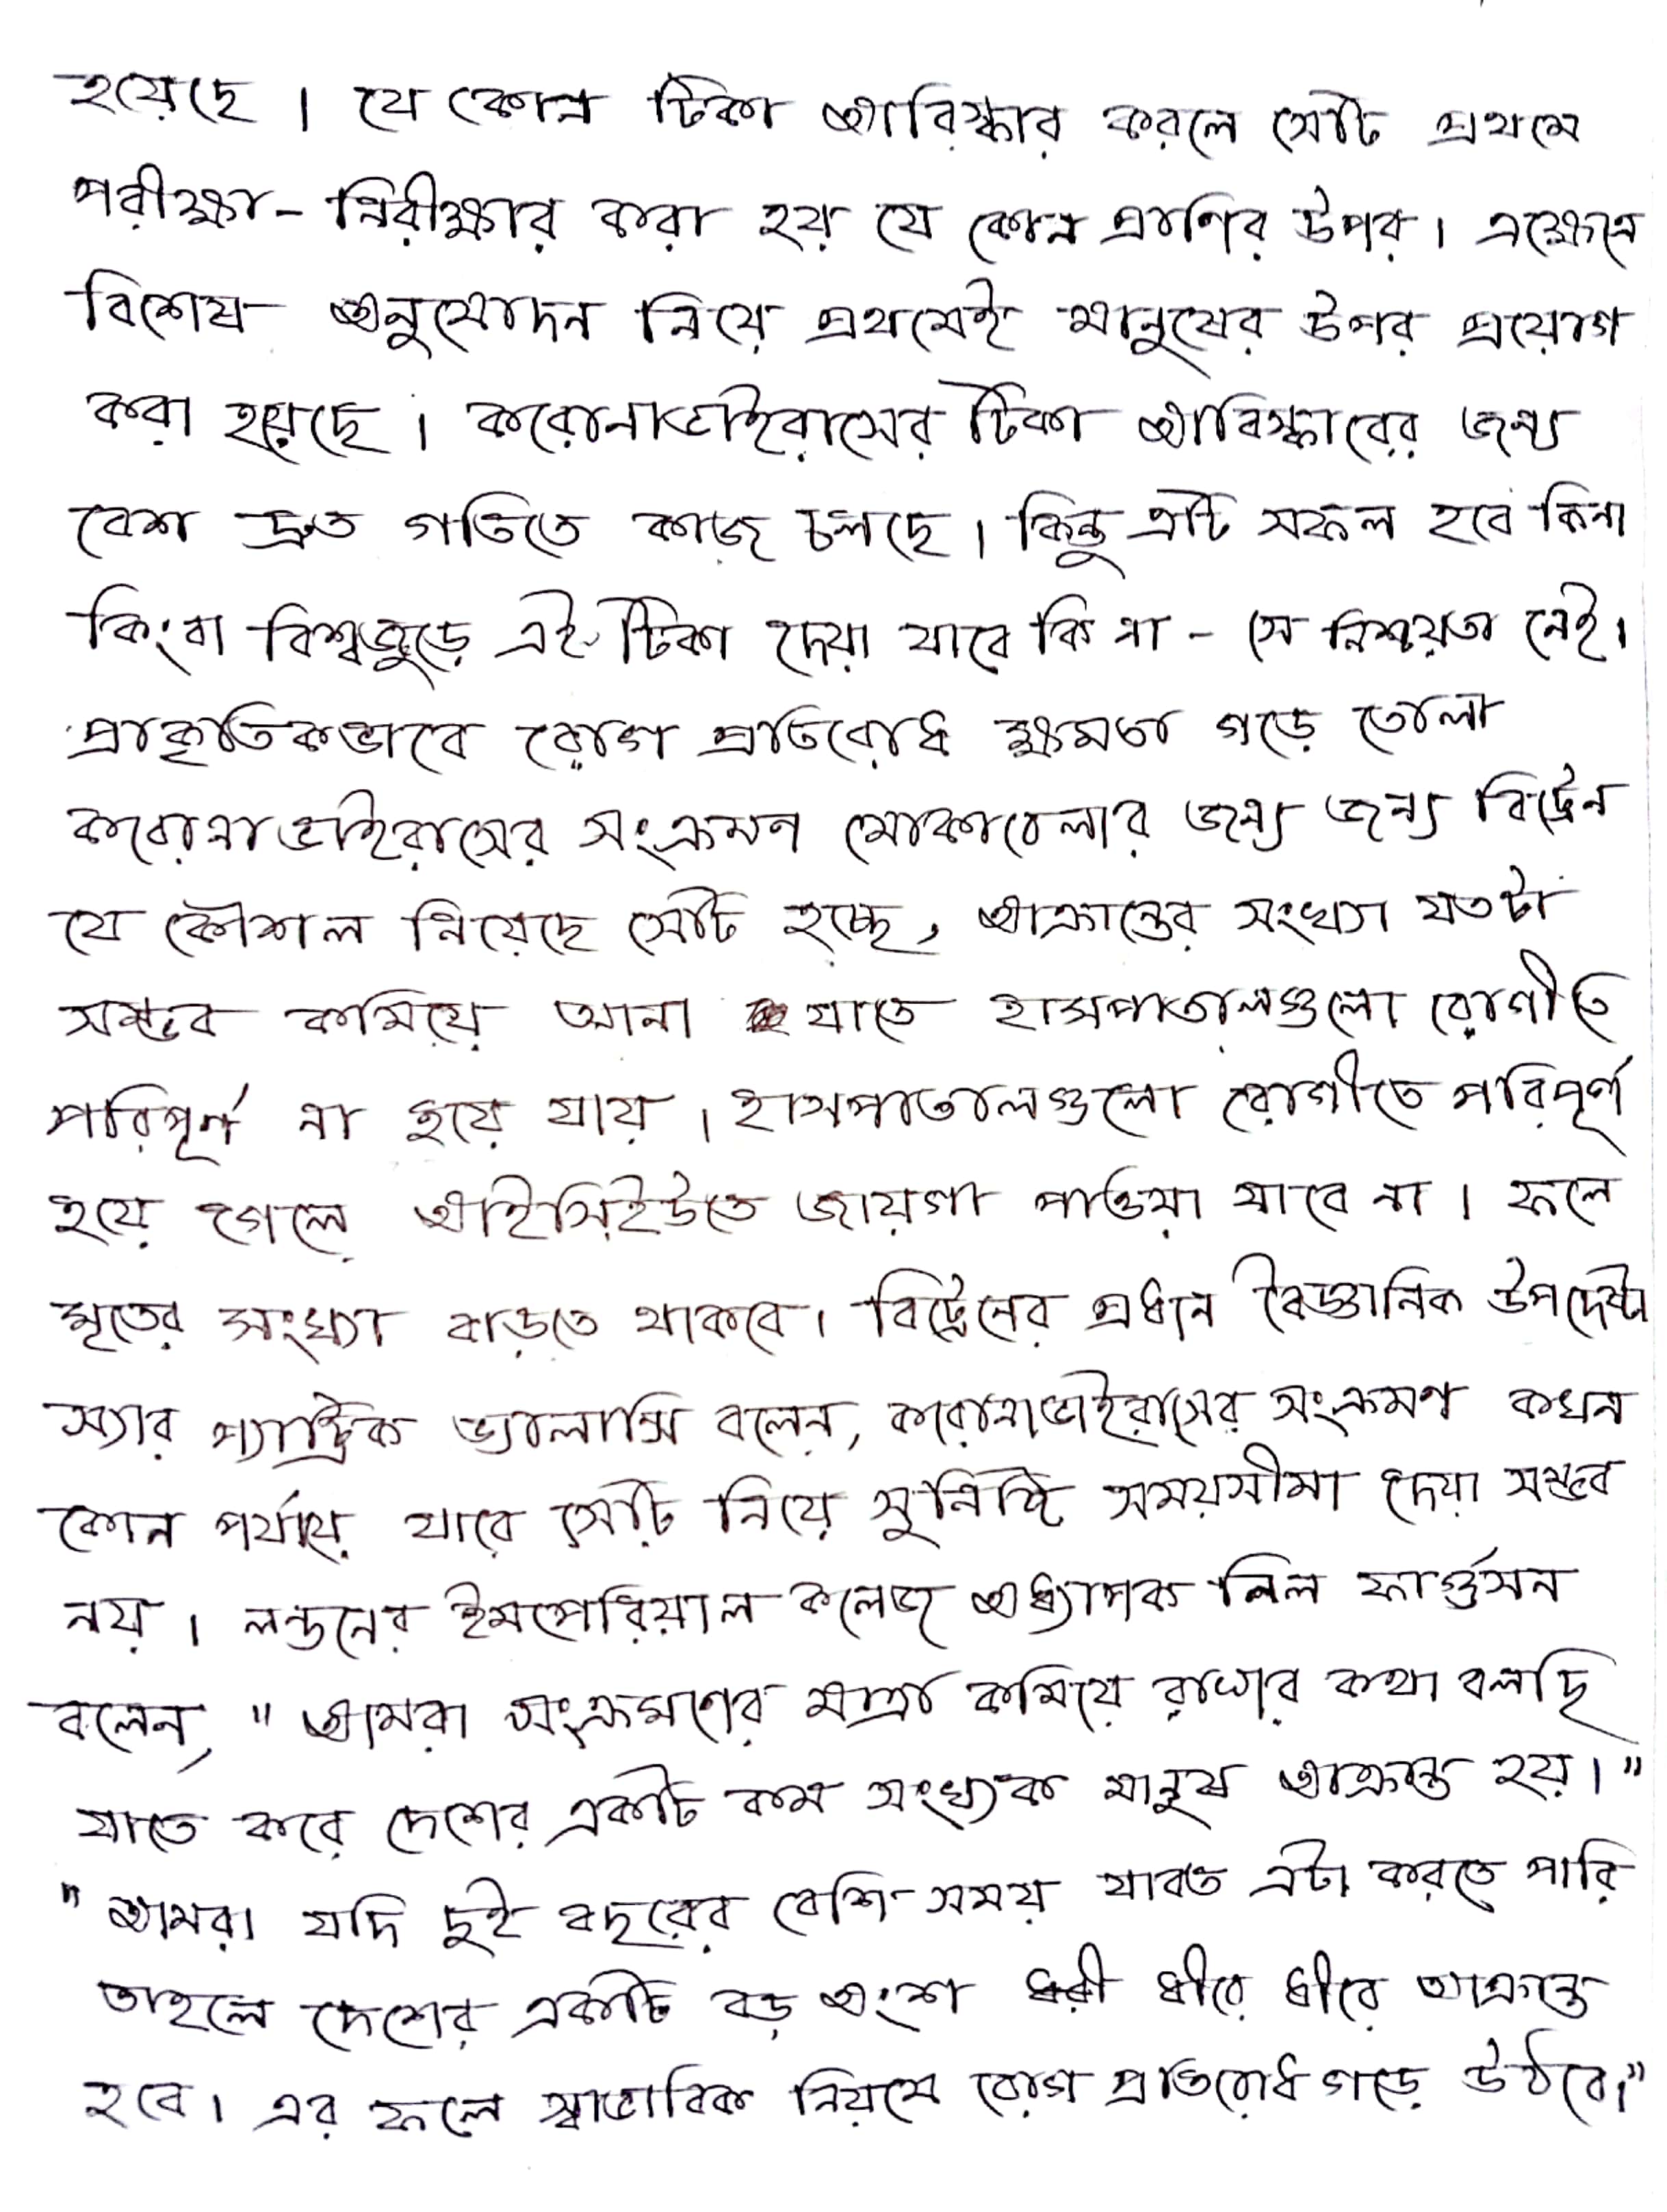 হয়েছে। যে কোন টিকা আবিস্কার করলে সেটি প্রথমে
পরীক্ষা-নিরীক্ষার করা হয় যে কোন প্রাণির উপর। এক্ষেত্রে
বিশেষ অনুমোদন নিয়ে প্রথমেই মানুষের উপর প্রয়োগ
করা হয়েছে। করোনাভাইরাসের টিকা আবিস্কারের জন্য
বেশ দ্রুত গতিতে কাজ চলছে। কিন্তু এটি সফল হবে কিনা
কিংবা বিশ্বজুড়ে এই টিকা দেয়া যাবে কি না - সে নিশ্চয়তা নেই।
প্রাকৃতিকভাবে রোগ প্রতিরোধ ক্ষমতা গড়ে তোলা
করোনাভাইরাসের সংক্রমণ মোকাবেলার জন্য জন্য বিট্রেন
যে কৌশল নিয়েছে সেটি হচ্ছে, আক্রান্তের সংখ্যা যতটা
সম্ভব কমিয়ে আনা যাতে হাসপাতালগুলো রোগীতে
পরিপূর্ণ না হয়ে যায়। হাসপাতালগুলো রোগীতে পরিপূর্ণ
হয়ে গেলে আইসিইউতে জায়গা পাওয়া যাবে না। ফলে
মৃতের সংখ্যা বাড়তে থাকবে। বিট্রেনের প্রধান বৈজ্ঞানিক উপদেষ্টা
স্যার প্যাট্রিক ভ্যালান্সি বলেন, করোনাভাইরাসের সংক্রমণ কখন
কোন পর্যায়ে যাবে সেটি নিয়ে সময়সীমা দেয়া সম্ভব
নয়। লন্ডনের ইমপেরিয়াল কলেজ অধ্যাপক নিল ফার্গুসন
বলেন, "আমরা সংক্রমণের মাত্রা কমিয়ে রাখার কথা বলছি
যাতে করে দেশের একটি কম সংখ্যক মানুষ আক্রান্ত হয়।"
"আমরা যদি দুই বছরের বেশি সময় যাবত এটা করতে পারি
তাহলে দেশের একটি বড় অংশ ধীরে ধীরে আক্রান্ত
হবে। এর ফলে স্বাভাবিক নিয়মে রোগ প্রতিরোধ গড়ে উঠবে।"